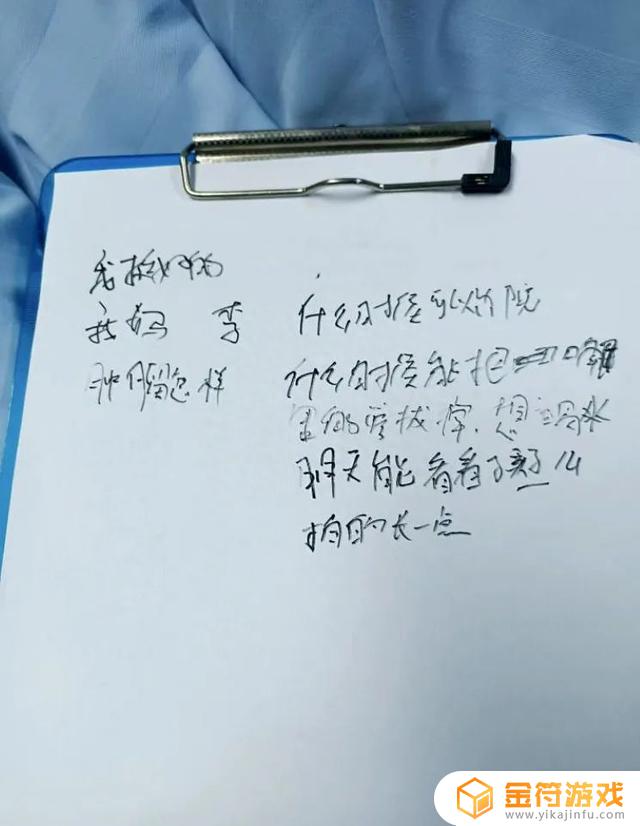 我妈 李
肿瘤怎样
什么时候可以出院
什么时候能把口
里的管拔掉,想喝水
明天能看看孩子么
拍的长一点
金符游戏
www.yikajinfu.com